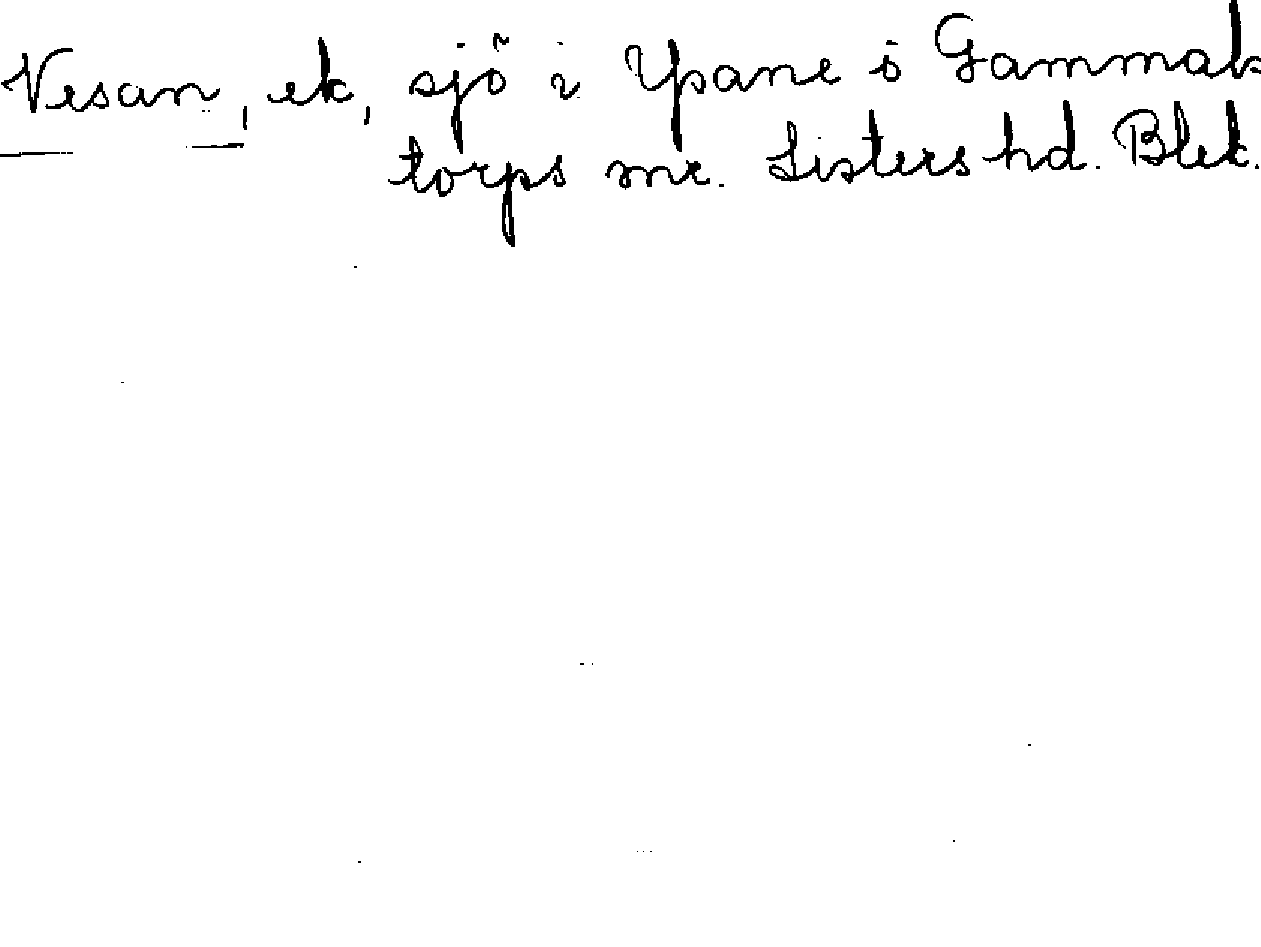 Vesan, ek, sjö i Ysane o Gammals
torps snr. Listers hd. Blek.